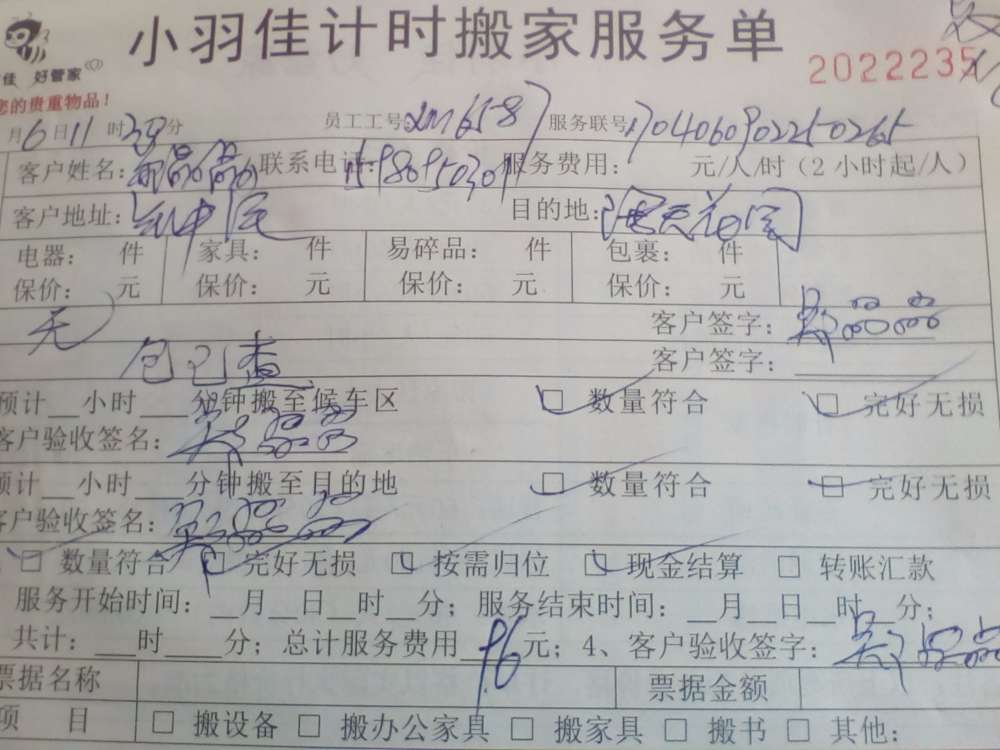 小羽佳计时搬家服务单
佳 好管家
2022235
您的贵重物品！
月6日11时30分 员工工号: 服务联号:
客户姓名: 联系电话: 服务费用: 元/人/时（2小时起/人）
客户地址: 目的地:
电器: 件 家具: 件 易碎品: 件 包裹: 件
保价: 元 保价: 元 保价: 元 保价: 元
无 客户签字: 吴晶晶
客户签字:
预计__小时___分钟搬至候车区 □ 数量符合 □ 完好无损
客户验收签名: 吴晶晶
预计__小时___分钟搬至目的地 □ 数量符合 □ 完好无损
客户验收签名: 吴晶晶
□ 数量符合 □ 完好无损 □ 按需归位 □ 现金结算 □ 转账汇款
服务开始时间: __月__日__时__分; 服务结束时间: __月__日__时__分;
共计: ___时____分; 总计服务费用 96 元; 4、客户验收签字: 吴晶晶
票据名称 票据金额
项 目 □ 搬设备 □ 搬办公家具 □ 搬家具 □ 搬书 □ 其他: